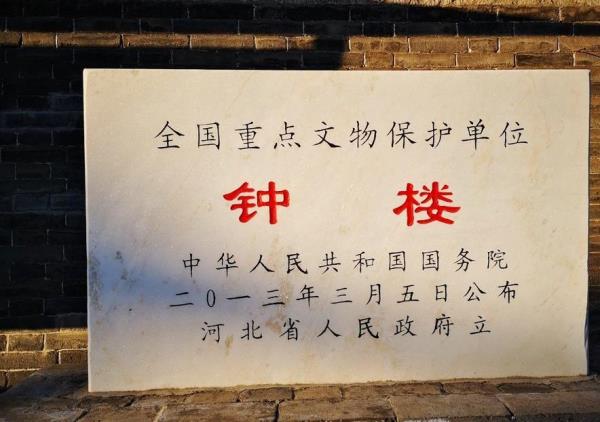 全国重点文物保护单位
钟 楼
中华人民共和国国务院
二0一三年三月五日公布
河北省人民政府立